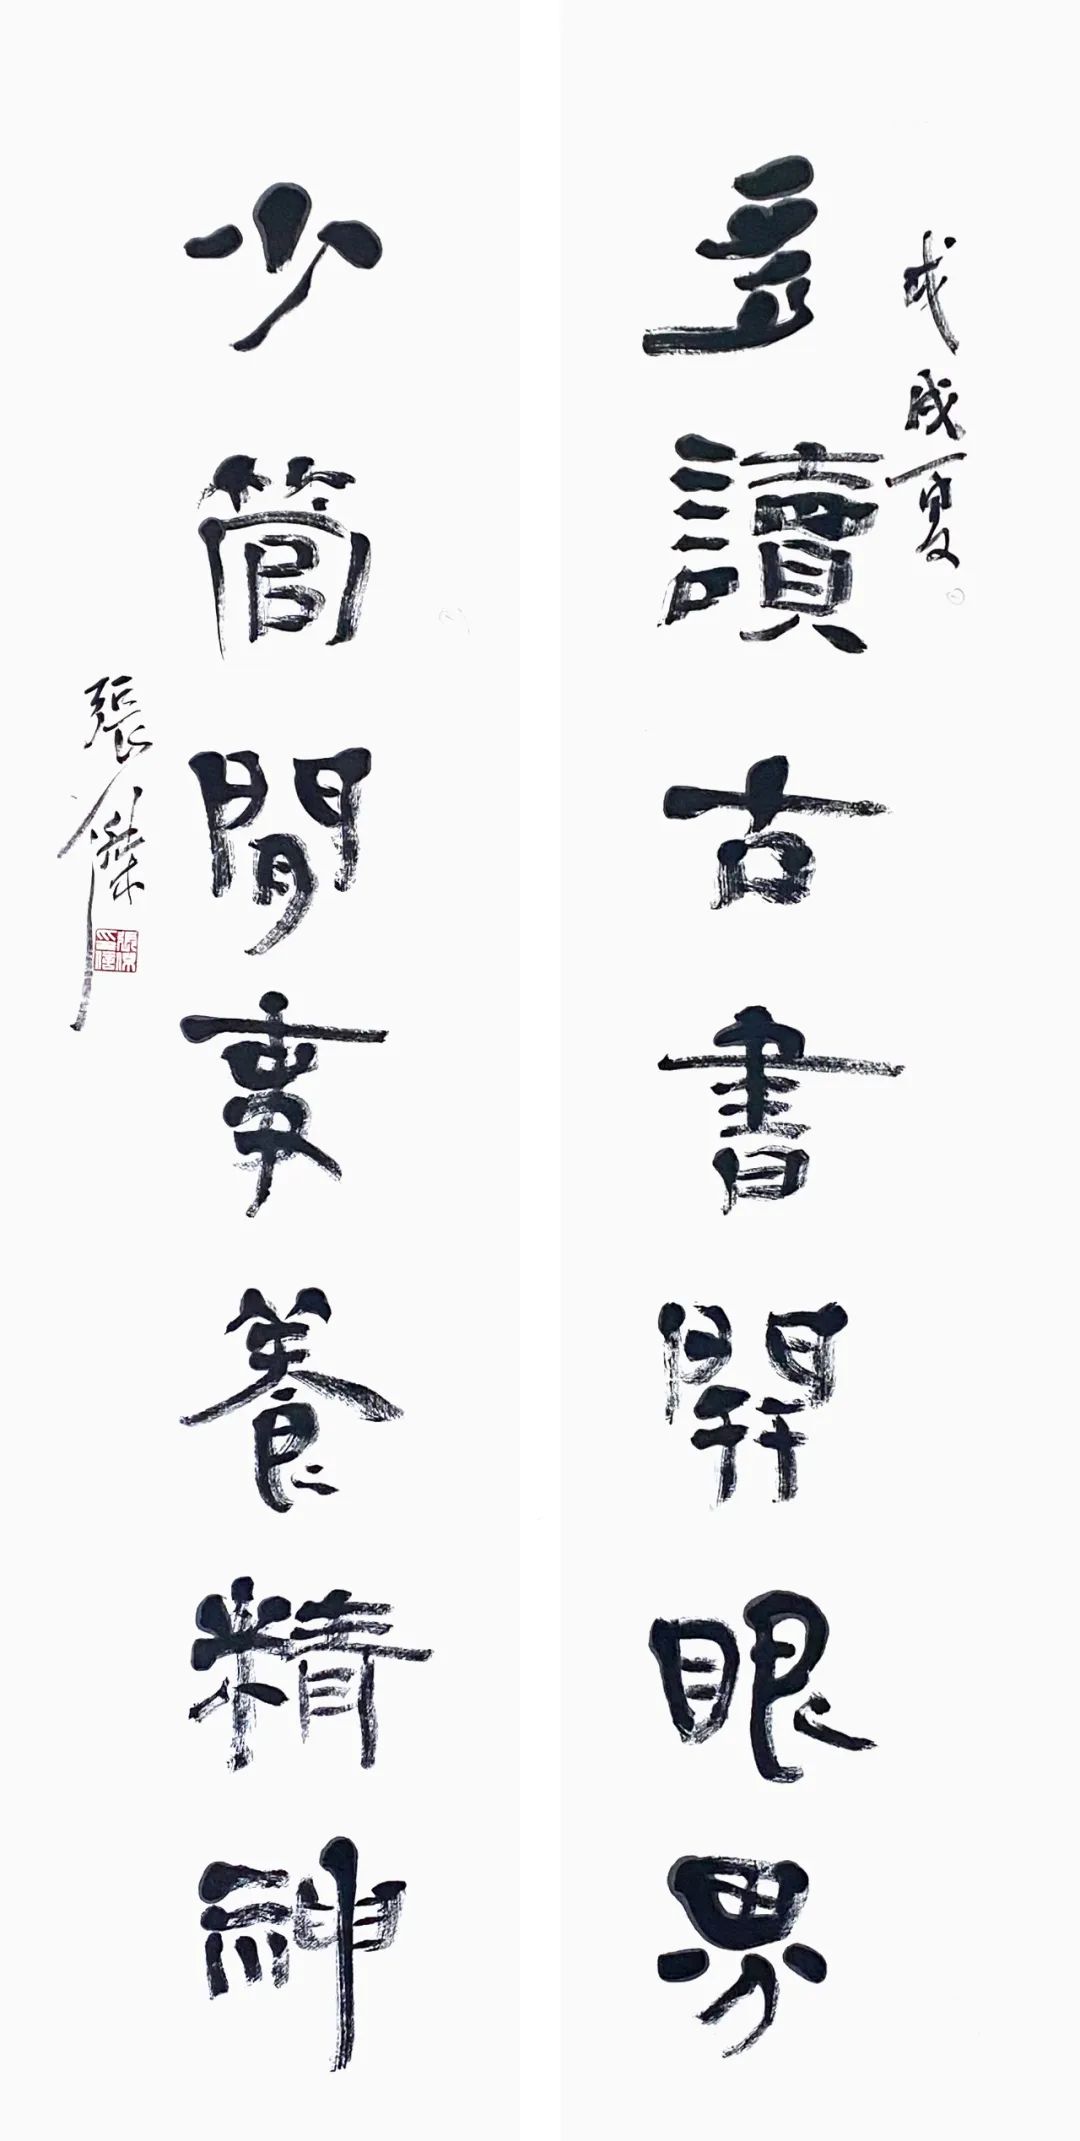 戊戌夏
多讀古書開眼界
少管閒事養精神
張傑